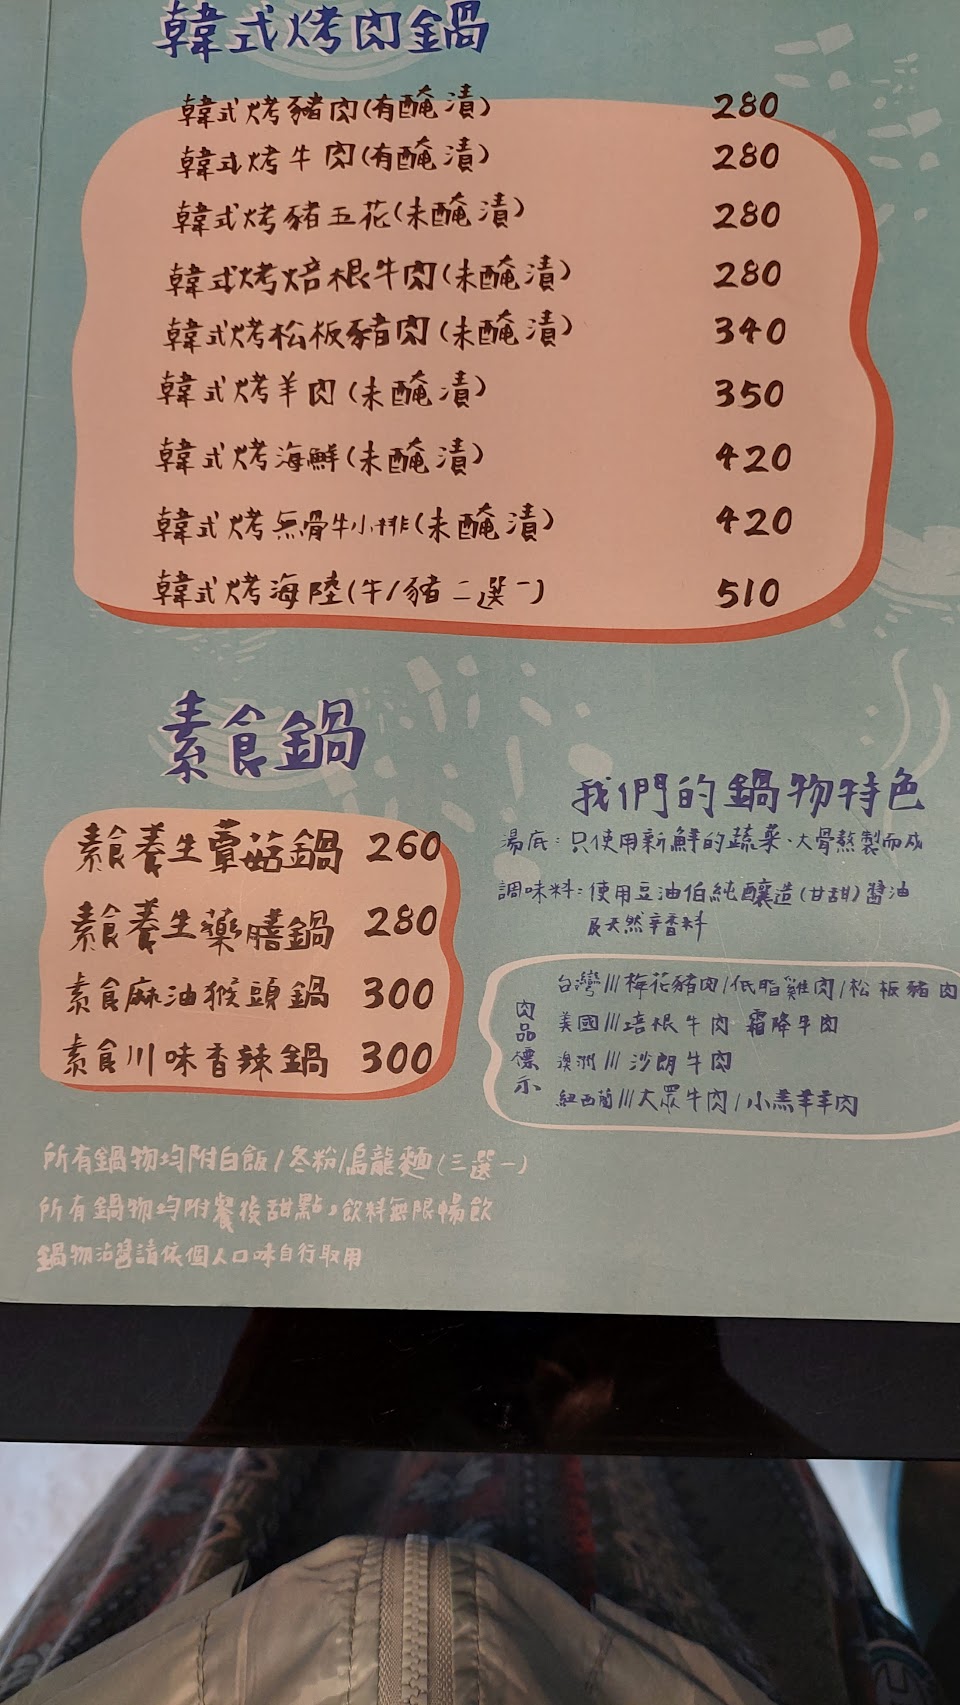 韓式烤肉鍋
韓式烤豬肉(有醃漬) 280
韓式烤牛肉(有醃漬) 280
韓式烤豬五花(未醃漬) 280
韓式烤焙根牛肉(未醃漬) 280
韓式烤松板豬肉(未醃漬) 340
韓式烤羊肉(未醃漬) 350
韓式烤海鮮(未醃漬) 420
韓式烤無骨牛小排(未醃漬) 420
韓式烤海陸(牛/豬二選一) 510
素食鍋
素食養生蕈菇鍋 260
素食養生藥膳鍋 280
素食麻油猴頭鍋 300
素食川味香辣鍋 300
我們的鍋物特色
湯底:只使用新鮮的蔬菜、大骨熬製而成
調味料:使用豆油伯純釀造(甘甜)醬油
及天然辛香料
肉品標示
台灣///梅花豬肉/低脂雞肉/松板豬肉
美國///培根牛肉 霜降牛肉
澳洲///沙朗牛肉
紐西蘭///大眾牛肉/小羔羊羊肉
所有鍋物均附白飯/冬粉/烏龍麵(三選一)
所有鍋物均附餐後甜點,飲料無限暢飲
鍋物沾醬請依個人口味自行取用